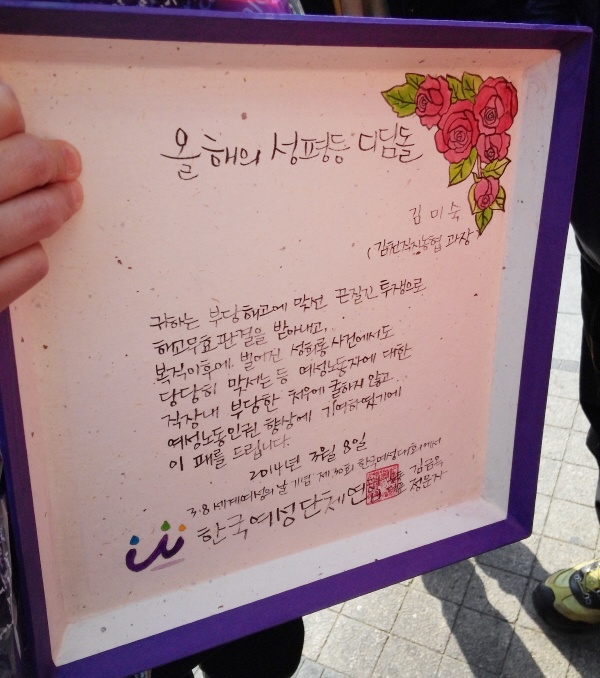 올해의 성평등 디딤돌
김미숙
(김천직지농협 과장)
귀하는 부당해고에 맞선 끈질긴 투쟁으로
해고무효판결을 받아내고,
복직이후에 벌어진 성희롱 사건에서도
당당히 맞서는 등 여성노동자에 대한
직장내 부당한 처우에 굴하지 않고
여성노동인권 향상에 기여하였기에
이 패를 드립니다.
2014년 3월 8일
3·8 세계여성의 날 기념 제30회 한국여성대회에서
한국여성단체연합 김금옥
정문자